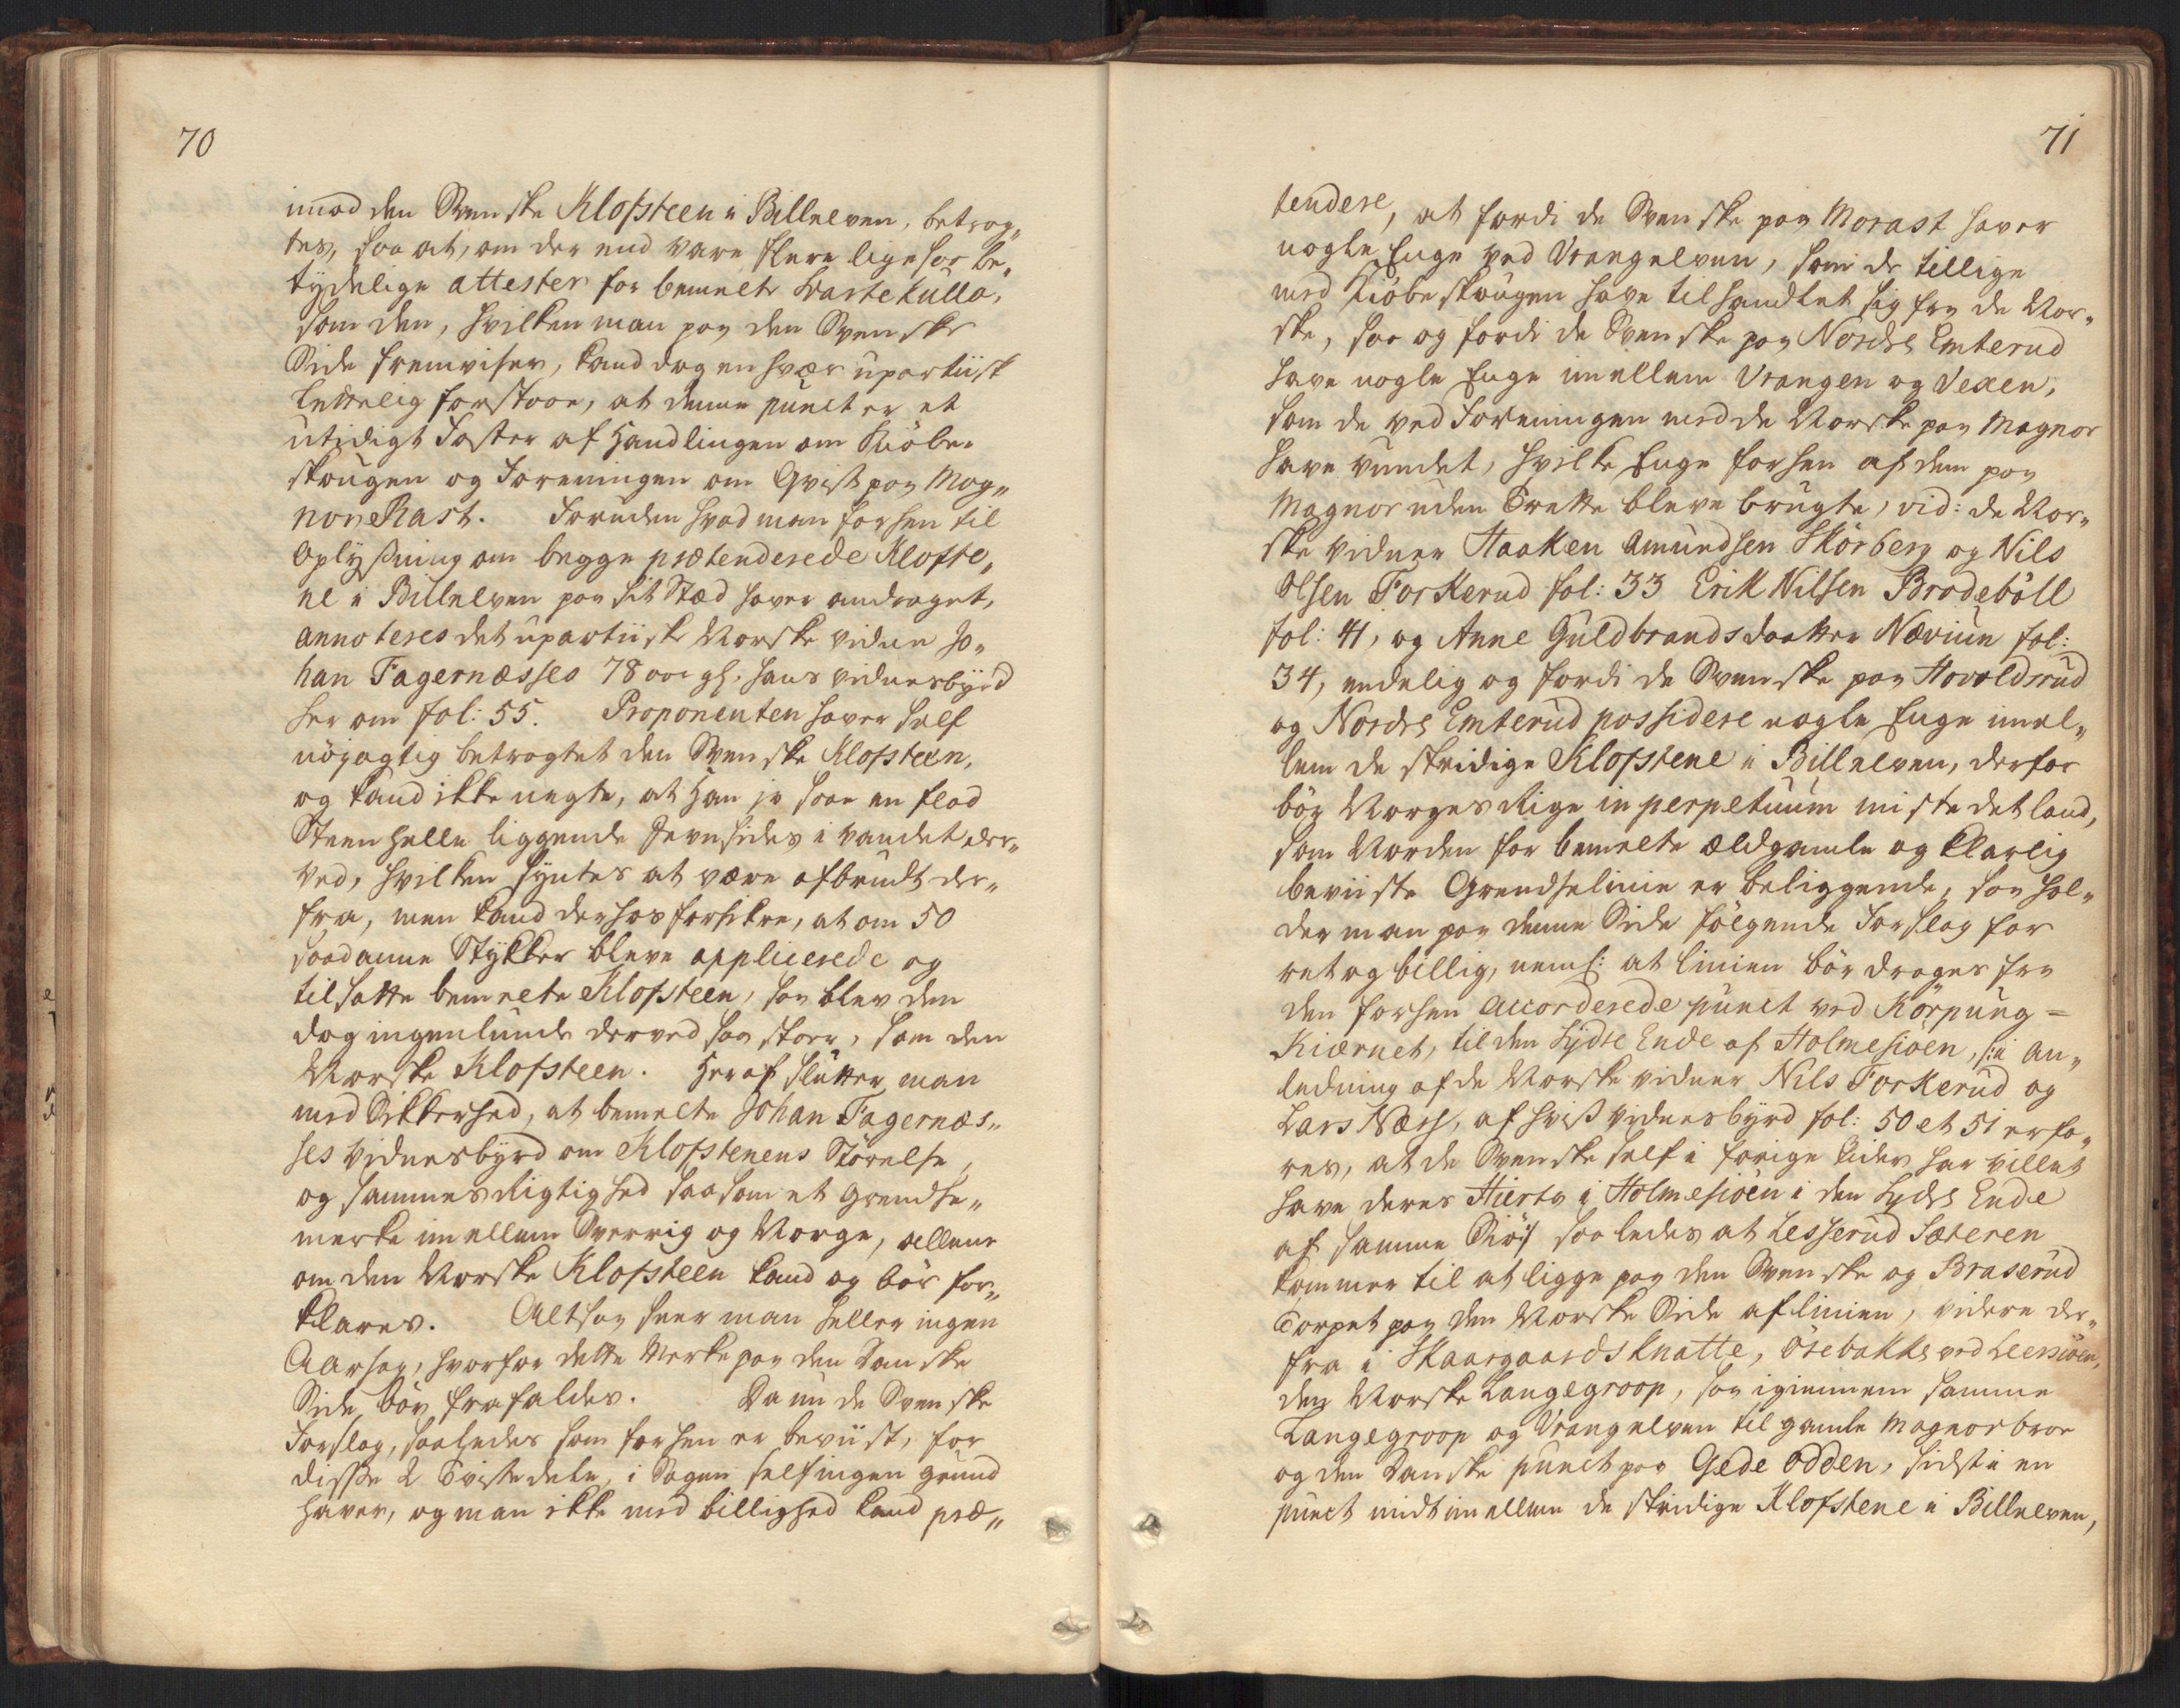 70
imod den Svenske Klofsteen i Billelven, betrag„
tes, saa at, om der end vare flere ligesaa be„
tydelige attester for bemelte Svarte Kulla,
som den, hvilken man paa den Svenske
Side fremviser, kand dog en hvær upartiisk
lettelig forstaae, at denne punct er et
utidigt Foster af Handlingen om Kiöbe„
skougen og Foreningen om Qvist paa Mag„
nor Rast. Foruden hvad man forhen til
Oplysning om begge prætenderede Klofste„
ne i Billelven paa sit Stæd haver andraget,
annoteres det upartiiske Norske vidne Jo„
han Fagernæsses 78 aar gl. hans vidnesbyrd
her om fol: 55. Proponenten haver self
nöyagtig betragtet den Svenske Klofsteen,
og kand ikke negte, at Han jo saae en flad
Steen Helle liggende Jevnsides i vandet der„
ved, hvilken syntes at være afbrudt der„
fra, men kand derhos forsikre, at om 50
saadanne Stykker bleve applicerede og
tilsatte bemelte Klofsteen, saa blev den
dog ingenlunde derved saa stoer, som den
Norske Klofsteen. Heraf slutter man
med Sikkerhed, at bemelte Johan Fagernæs„
ses vidnesbyrd om Klofstenens Störelse,
og sammes Rigtighed saasom et Grendse„
merke imellem Sverrig og Norge, allene
om den Norske Klofsteen kand og bör for„
klares. Altsaa seer man heller ingen
Aarsag, hvorfor dette Merke paa den Danske
Side bör frafaldes. Da nu de Svenske
Forslag, saaledes som forhen er beviist, for
disse 2 Tviste dele, i Sagen self ingen grund
haver, og man ikke med billighed kand præ„
71
tendere, at fordi de Svenske paa Morast haver
nogle Enge ved Vrangelven, som de tillige
med Kiöbeskougen have tilhandlet sig fra de Nor„
ske, saa og fordi de Svenske paa Nordre Emterud
have nogle Enge imellem Vrangen og Vexen,
som de ved Foreningen med de Norske paa Magnor
have vundet, hvilke Enge forhen af dem paa
Magnor uden Trætte bleve brugte, vid: de Nor„
ske vidner Haaken Amundsen Skörberg og Nils
Olsen Forkerud fol: 33 Erik Nilsen Brodeböll
fol: 41, og Anne Guldbrandsdaatter Nævium fol:
34, endelig og fordi de Svenske paa Havoldrud
og Nordre Emterud possidere nogle Enge imel„
lem de stridige Klofstene i Billelven, derfor
bör Norges Rige in perpetuum miste det land,
som Norden for bemelte ældgamle og klarlig
beviiste Grendselinie er beliggende, saa hol„
der man paa denne Side fölgende Forslag for
ret og billig, neml: at linien bör drages fra
den forhen accorderede punct ved Körpung=
Kiærnet, til den Sydre Ende af Holmesiöen, /:i An„
ledning af de Norske vidner Nils Forkerud og
Lars Næss, af hvis vidnesbyrd fol: 50 et 51 erfa„
res, at de Svenske self i forige tider har villet
have deres Hierta i Holmesiöen i den Sydre Ende
af samme Siö:/ saaledes at Lesserud Sæteren
kommer til at ligge paa den Svenske og Braserud
Torpet paa den Norske Side af linien, videre der„
fra i Skaargaards Knatte, Örebakke ved Leersiöen,
den Norske Langegroop, saa igiennem samme
Langegroop og Vrangelven til gamle Magnor broe
og den Danske punct paa Gede Odden, sidst i en
punct midt imellem de stridige Klofstene i Billelven,